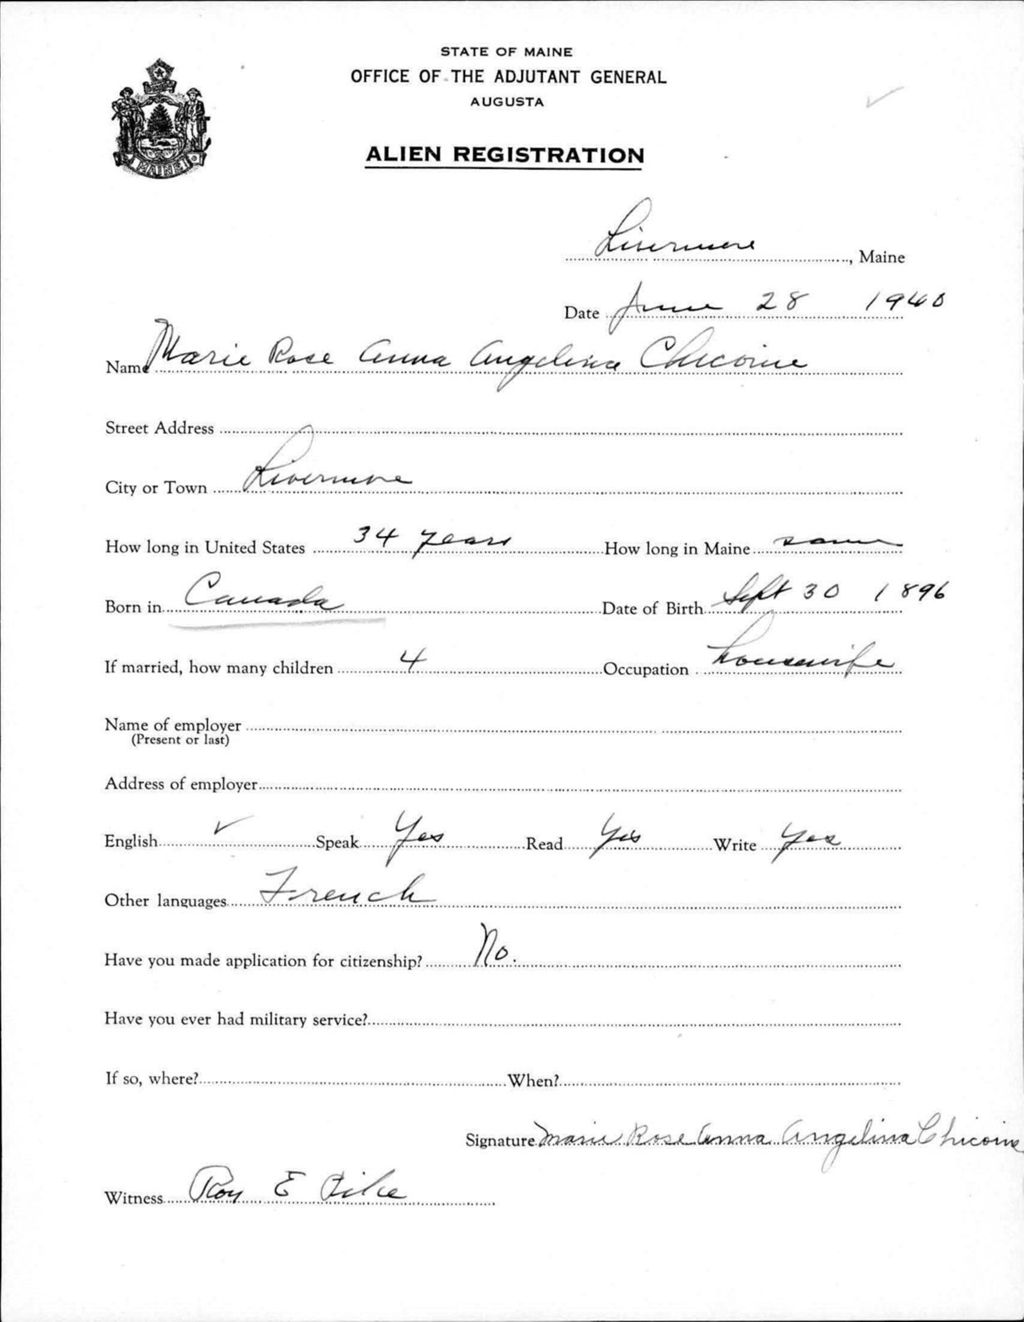 STATE OF MAINE
OFFICE OF THE ADJUTANT GENERAL
AUGUSTA
ALIEN REGISTRATION
MAINE
Livermore, Maine
Date June 28 1940
Name Marie Rose Anna Angelina Chicoine
Street Address
City or Town Livermore
How long in United States 34 years How long in Maine same
Born in Canada Date of Birth Sept 30 1896
If married, how many children 4 Occupation housewife
Name of employer
(Present or last)
Address of employer
English ✓ Speak Yes Read Yes Write Yes
Other languages French
Have you made application for citizenship? No.
Have you ever had military service?
If so, where? When?
Signature Marie Rose Anna Angelina Chicoine
Witness Roy E Pike